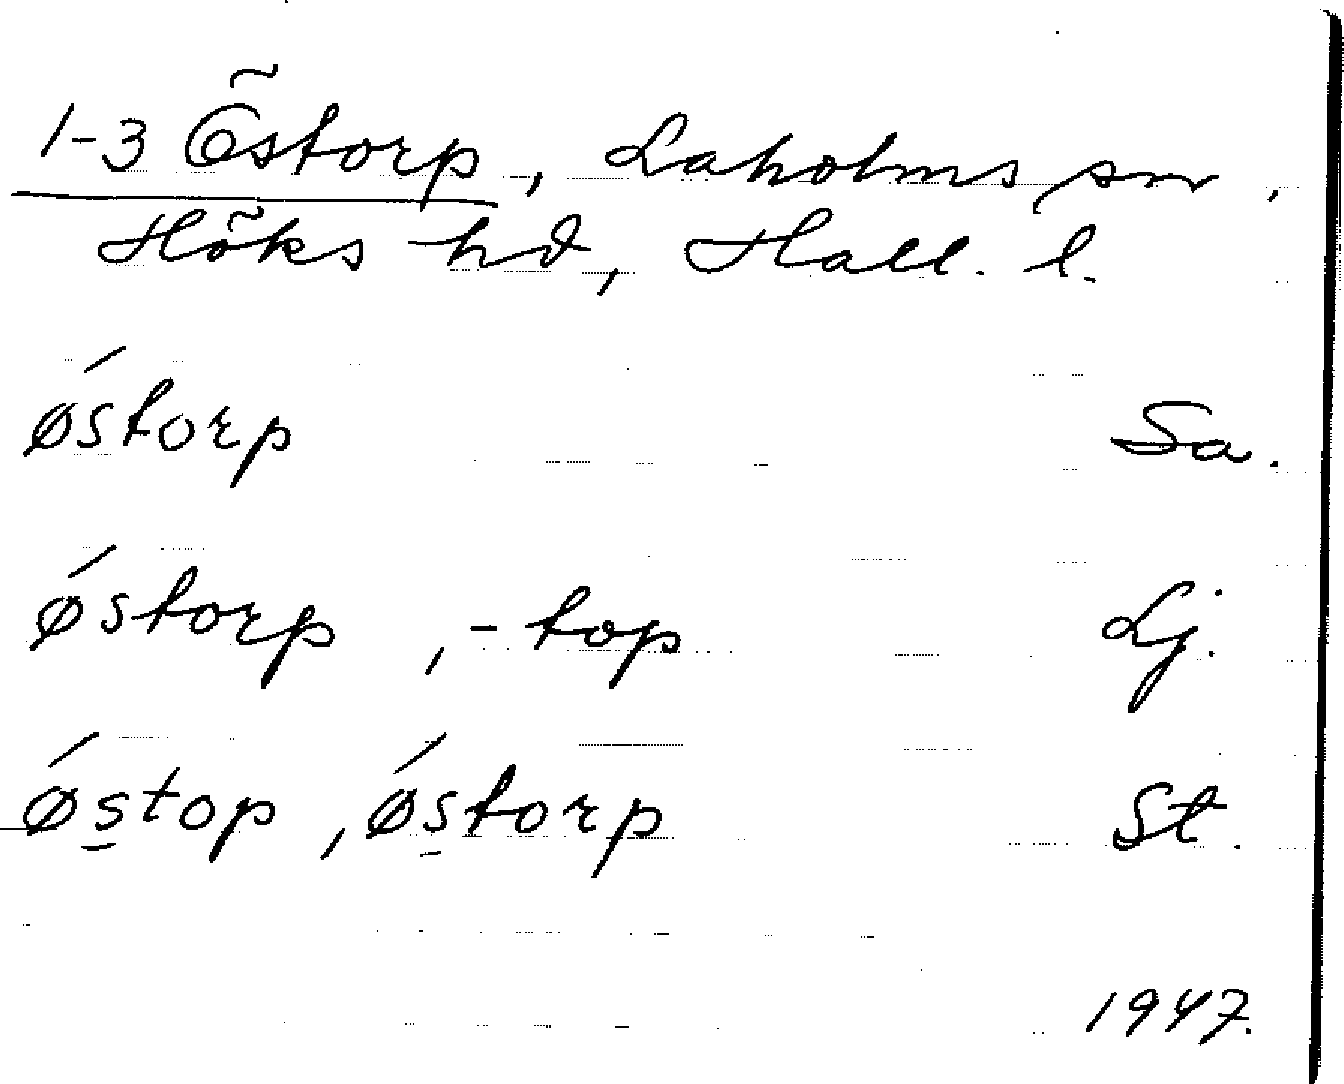 1-3 Östorp, Laholms sn,
Höks hd, Hall. l.
ǿstorp Sa.
ǿstorp, -top Lj.
ǿs̲top, ǿs̲torp St.
1947.